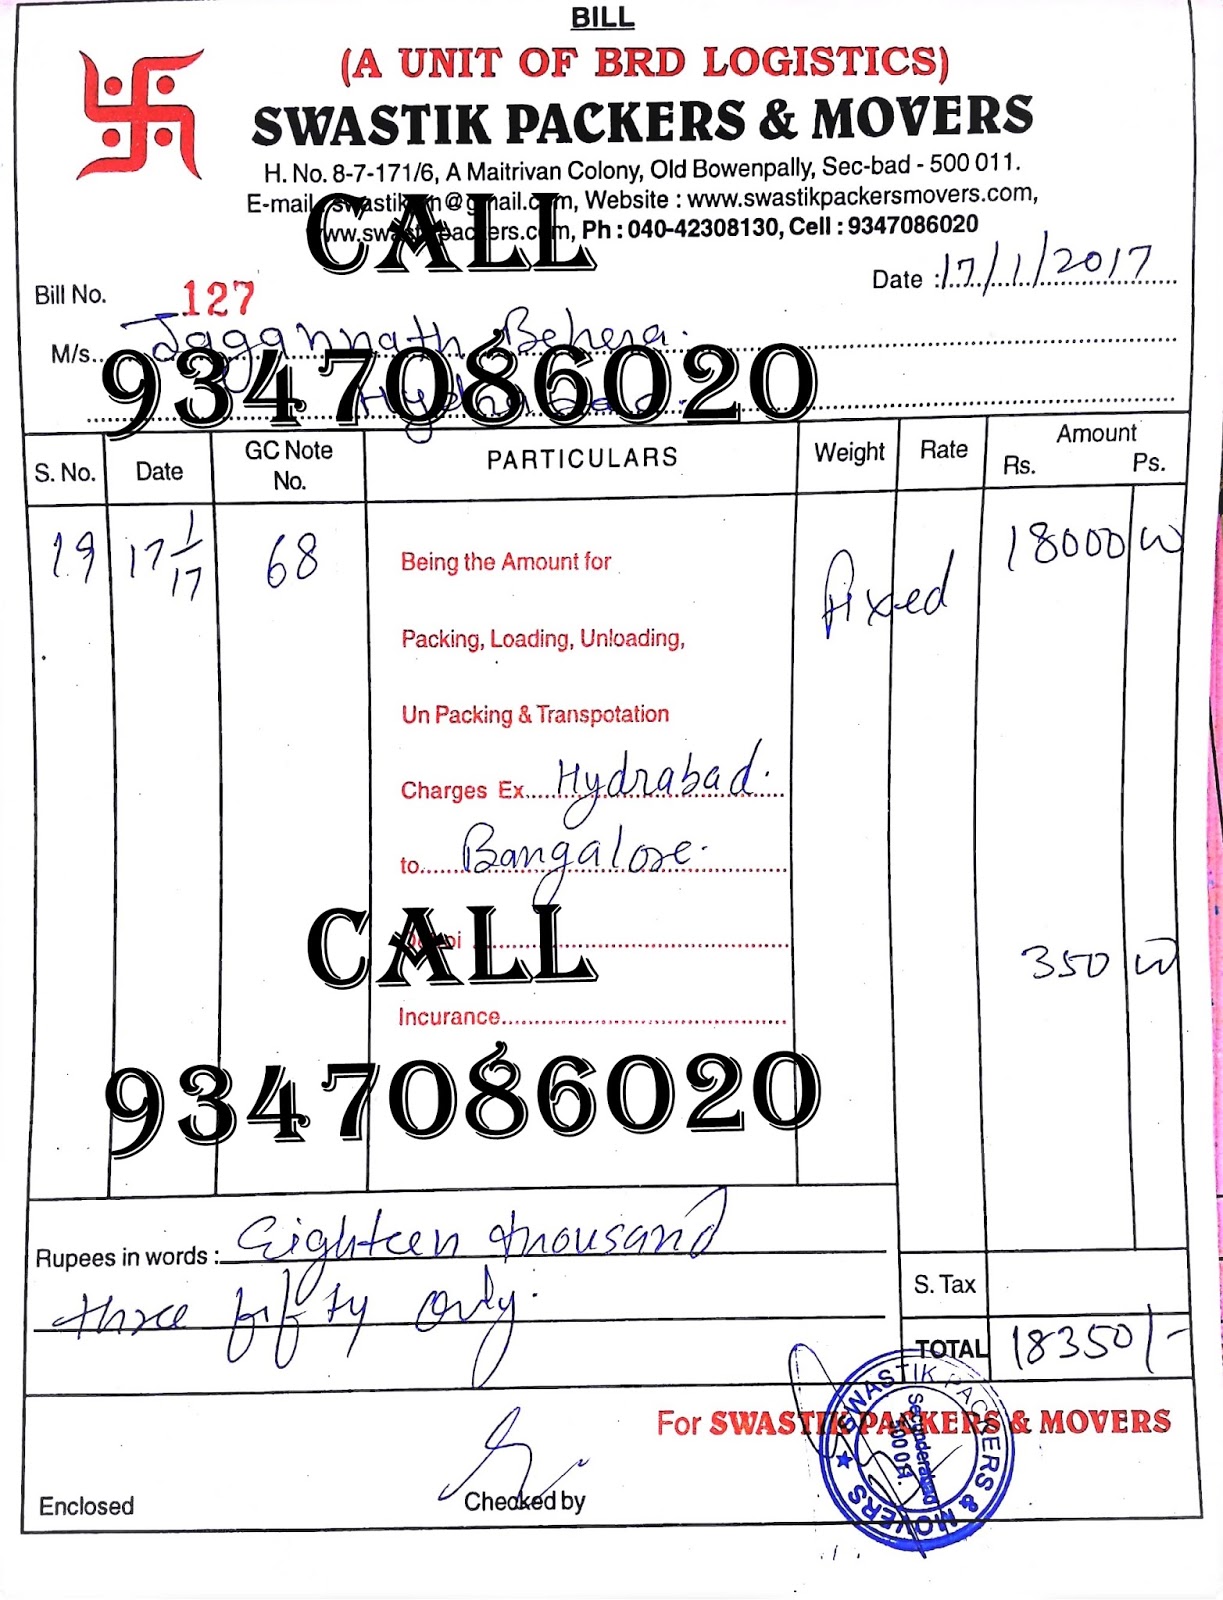 BILL
(A UNIT OF BRD LOGISTICS)
SWASTIK PACKERS & MOVERS
H. No. 8-7-171/6, A Maitrivan Colony, Old Bowenpally, Sec-bad - 500 011.
E-mail @gmail.com, Website : www.swastikpackersmovers.com,
Ph : 040-42308130, Cell : 9347086020
CALL
Bill No. 127
Date : 17/1/2017
M/s. Jagannath Behera.
9347086020
S. No. Date GC Note No. PARTICULARS Weight Rate Amount
Rs. Ps.
19 17 1/17 68 Being the Amount for Fixed 18000
Packing, Loading, Unloading,
Un Packing & Transpotation
Charges Ex. Hydrabad.
to Bangalore.
CALL
350
Incurance
9347086020
Rupees in words : Eighteen thousand
three fifty only.
S. Tax
TOTAL 18350/-
For SWASTIK PACKERS & MOVERS
SWASTIK PACKERS & MOVERS
Secunderabad
Enclosed Checked by